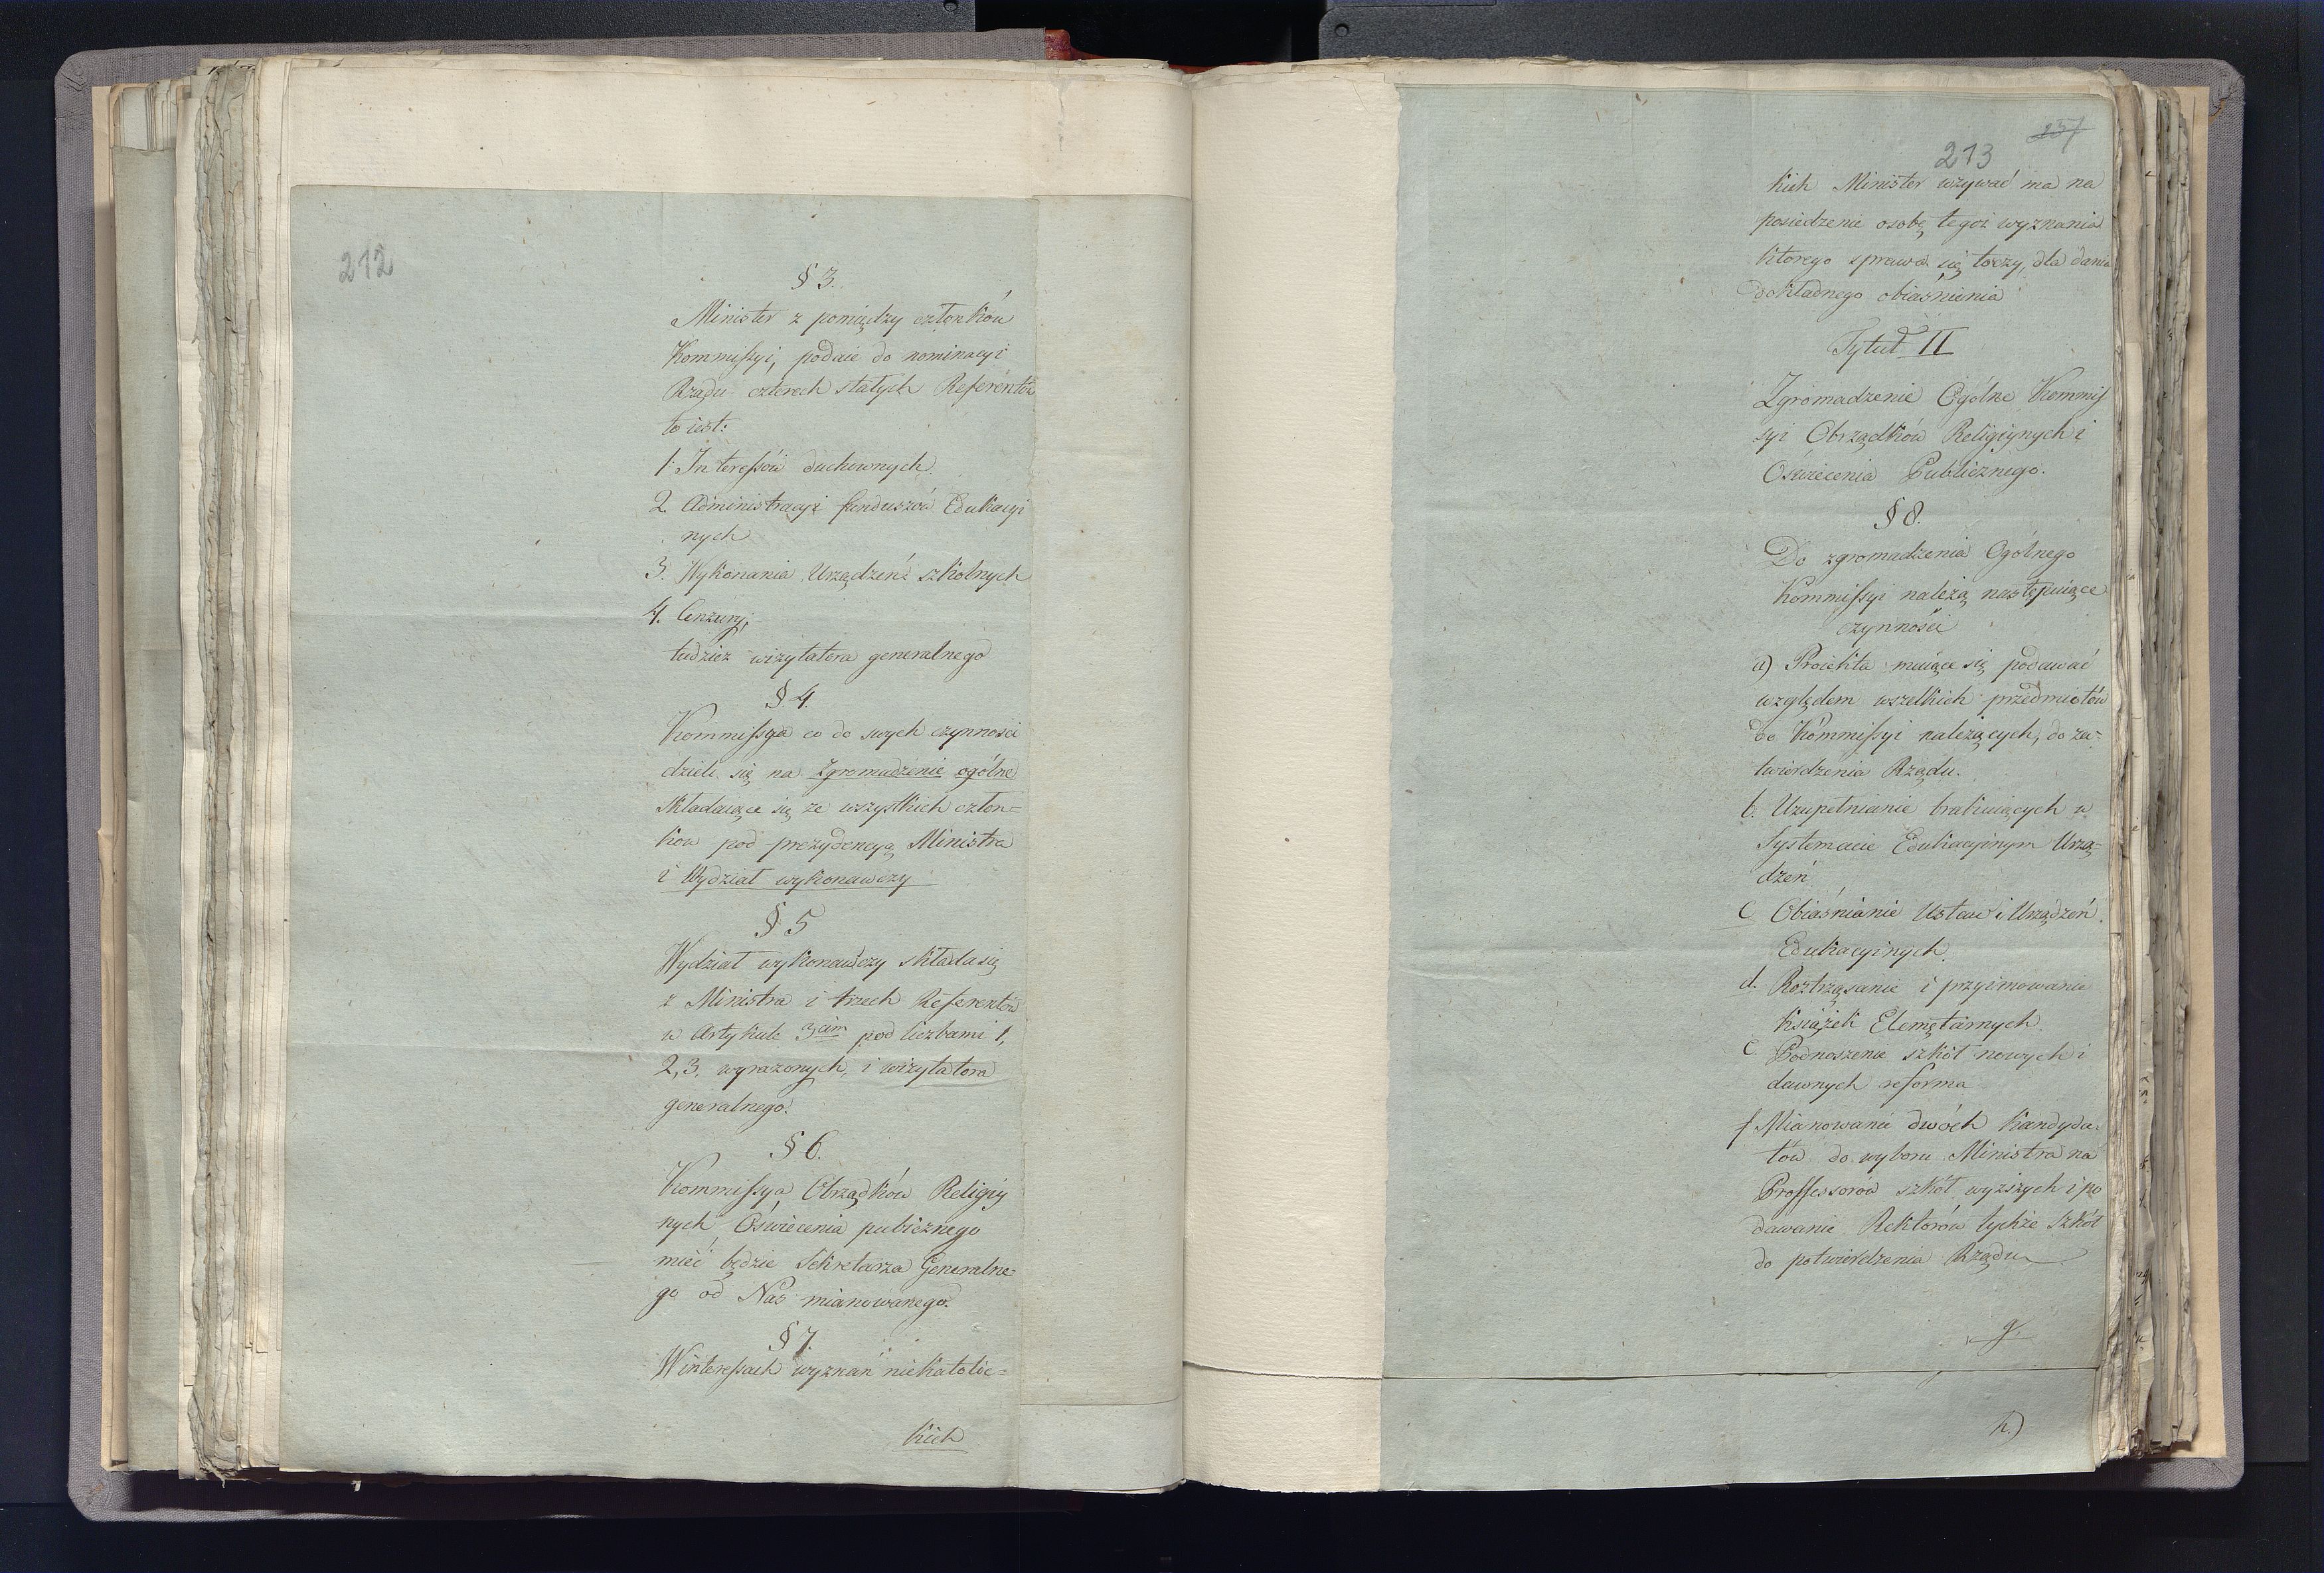 212
§ 3.
Minister z pomiędzy członków
Kommissyi, podaie do nominacyi
Rządu czterech stałych Referentów
to iest:
1. Interessów duchownych.
2. Administracyi funduszów Edukacyi
nych
3. Wykonania Urządzeń szkolnych
4. Cenzury;
tudzież wizytatora generalnego
§. 4.
Kommissya co do swych czynności
dzieli się na Zgromadzenie ogólne
składaiące się ze wszystkich człon=
ków pod prezydencyą Ministra
i Wydział wykonawczy
§ 5
Wydział wykonawczy składa się
z Ministra i trzech Referentów
w Artykule 3cim pod liczbami 1,
2, 3. wyrażonych, i wizytatora
generalnego.
§ 6.
Kommissya Obrządków Religiy
nych Oświecenia publicznego
mieć będzie Sekretarza Generalne=
go od Nas mianowanego.
§ 7.
W interessach wyznań niekatolic=
kich
237
213
kich Minister wzywać ma na
posiedzenie osobę tegoż wyznania
którego sprawa się toczy, dla dania
dokładnego obiaśnienia
Tytuł II
Zgromadzenie Ogólne Kommis
syi Obrządków Religiynych i
Oświecenia Publicznego.
§ 8.
Do zgromadzenia Ogólnego
Kommissyi należą następuiące
czynności
a) Proiekta maiące się podawać
względem wszelkich przedmiotów
do Kommissyi należących, do za=
twierdzenia Rządu.
b. Uzupełnianie brakuiących w
Systemacie Edukacyinym Urzą=
dzeń
c Obiaśnianie Ustaw i Urządzeń
Edukacyinych.
d. Roztrząsanie i przyimowanie
książek Elemętarnych.
e Podnoszenie szkół nowych i
dawnych reforma
f. Mianowanie dwóch Kandyda=
tów do wyboru Ministra na
Professorów szkół wyższych i po
dawanie Rektorów tychże Szkół
do potwierdzenia Rządu
g.
h.)